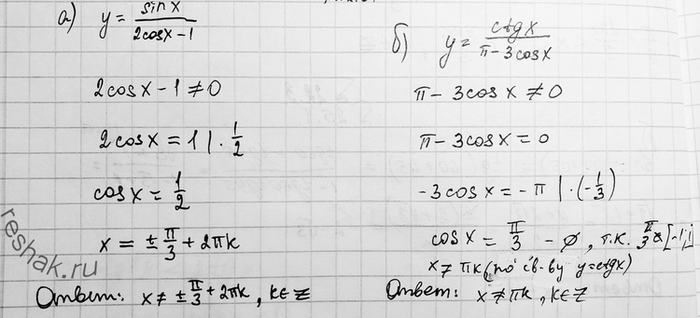 а) y = sin x / (2cos x - 1)
2cos x - 1 ≠ 0
2cos x = 1 | · 1/2
cos x = 1/2
x = ± π/3 + 2πk
Ответ: x ≠ ± π/3 + 2πk, k∈Z
б) y = ctg x / (π - 3cos x)
π - 3cos x ≠ 0
π - 3cos x = 0
-3cos x = -π | · (-1/3)
cos x = π/3 - ∅, т.к. π/3 ∉ [-1;1]
x ≠ πk (по св-ву y = ctg x)
Ответ: x ≠ πk, k∈Z
reshak.ru